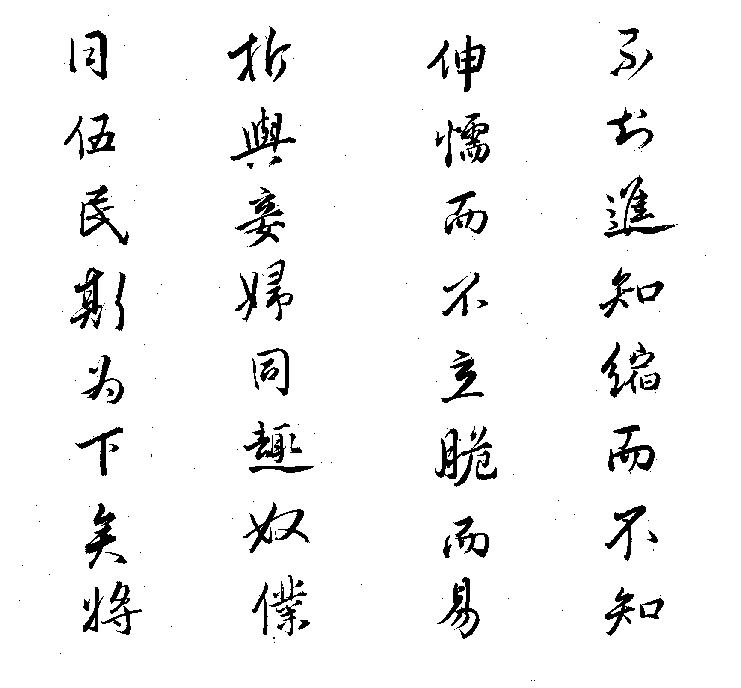 不知進知縮而不知
伸懦而不立脆而易
折與妾婦同趣奴僕
同伍民斯为下矣將